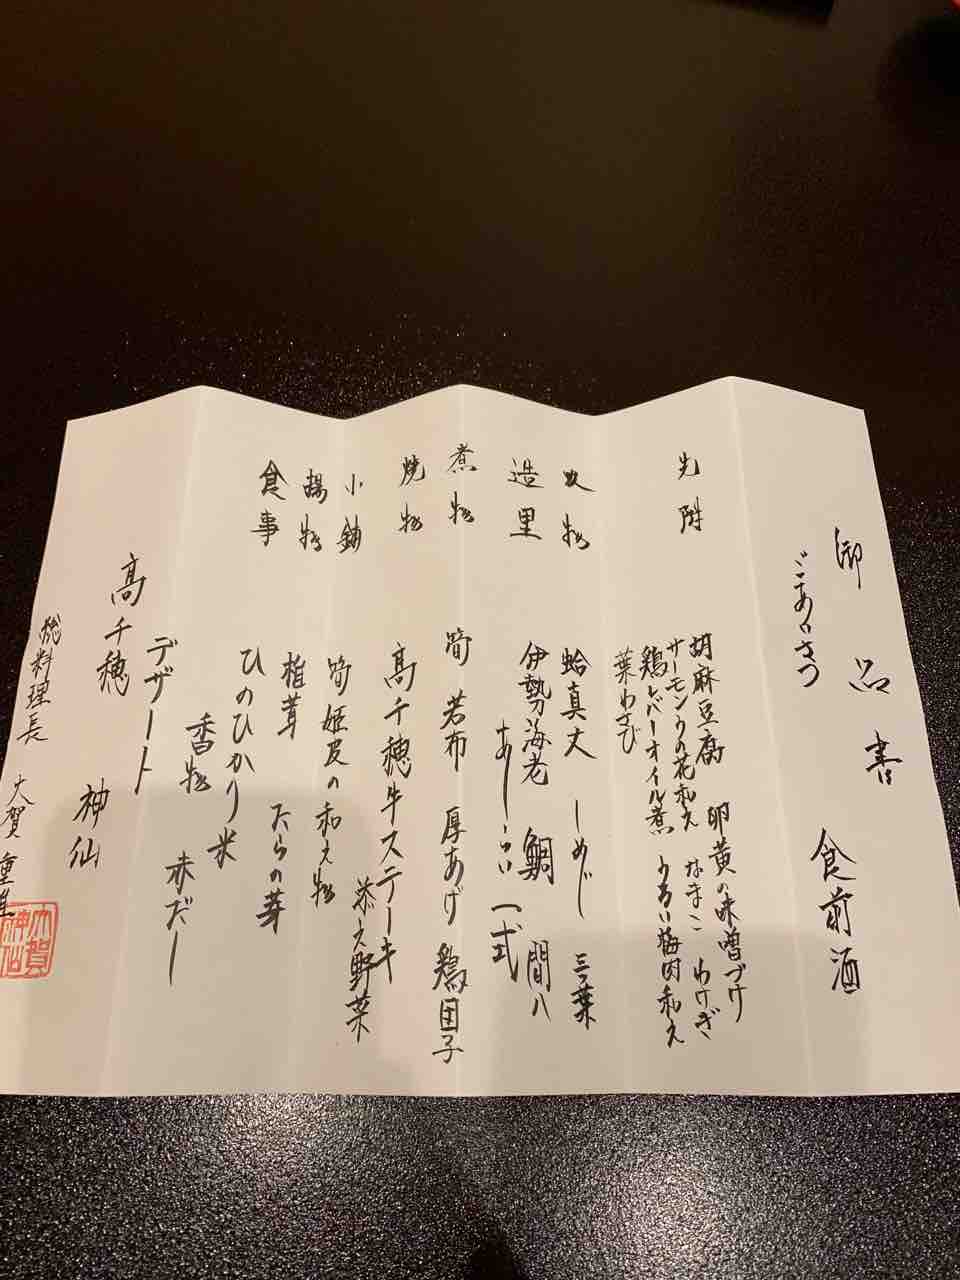 御品書
ごあいさつ 食前酒
先附 胡麻豆腐 卵黄の味噌づけ
サーモン 花和え なまこ わけぎ
鶏レバーオイル煮 うるい梅肉和え
葉わさび
吸物 蛤真丈 しめじ 三つ葉
造里 伊勢海老 鯛 間八
あしらい一式
煮物 筍 若布 厚あげ 鶏団子
焼物 高千穂牛ステーキ
添え野菜
小鉢 筍姫皮の和え物
揚物 椎茸 たらの芽
食事 ひのひかり米
香物 赤だし
デザート
高千穂 神仙
総料理長 大賀
大賀神仙